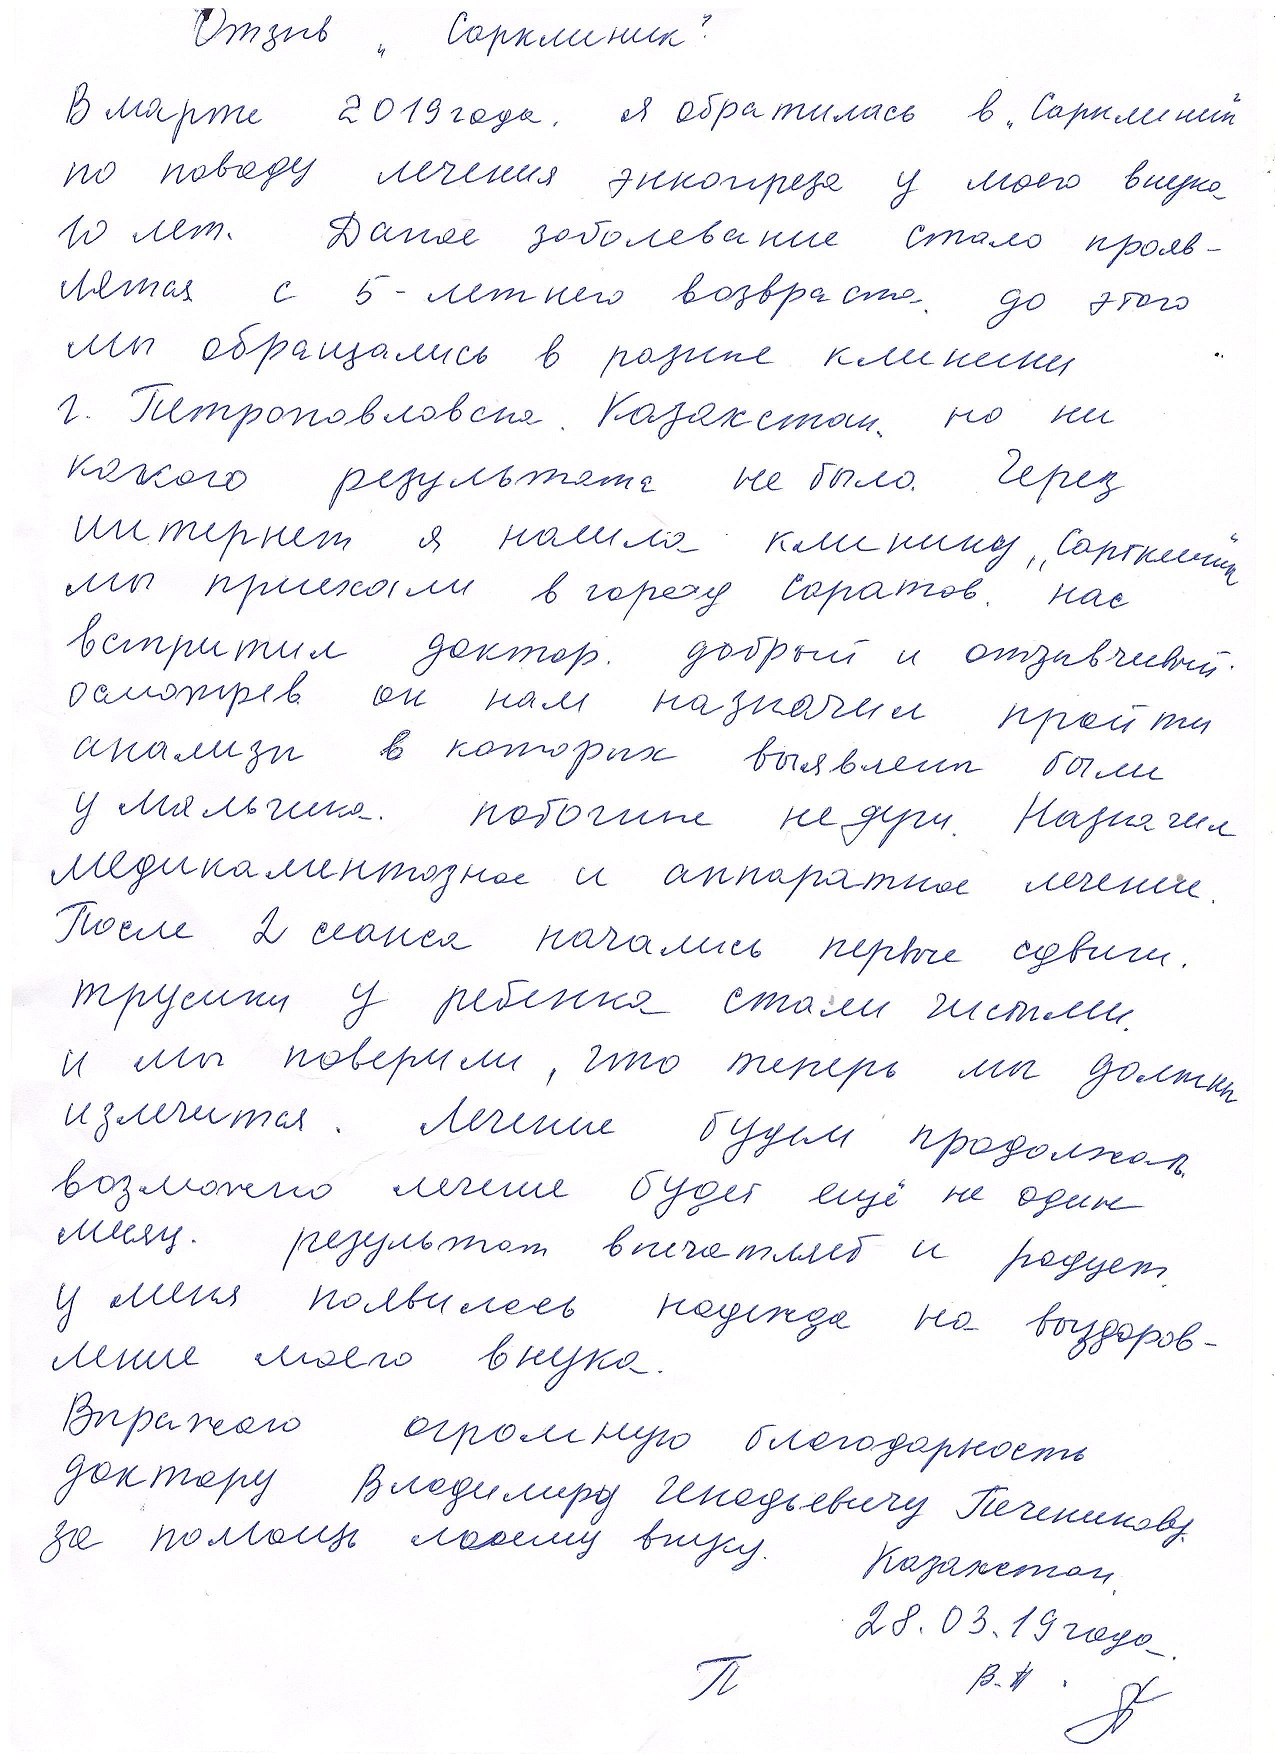 Отзыв „Сарклиник"
В марте 2019 года. я обратилась в „Сарклиник"
по поводу лечения энкопреза у моего внука
10 лет. Даное заболевание стало прояв-
лятся с 5-летнего возвраста. до этого
мы обращались в разные клиники
г. Петропавловска. Казахстан. но ни
какого результата не было. Через
интернет я нашла клинику „Сарклиник"
мы приехали в город Саратов. нас
встритил доктор. добрый и отзывчивый.
осмотрев он нам назначил пройти
анализы в которых выявлены были
у мальчика. побочные недуги. Назначил
медикаментозное и аппаратное лечение.
После 2 сеанса начались первые сдвиги.
трусики у ребенка стали чистыми.
и мы поверили, что теперь мы должны
излечится. Лечение будем продолжать.
возможно лечение будет ещё не один
месяц. результат впечатляет и радует.
у меня появилось надежда на выздоров-
ление моего внука.
Выражаю огромную благодарность
доктору Владимиру Генадьевичу Печеникову
за помощь моему внуку.
Казахстан.
28.03.19 года.
П В.П.